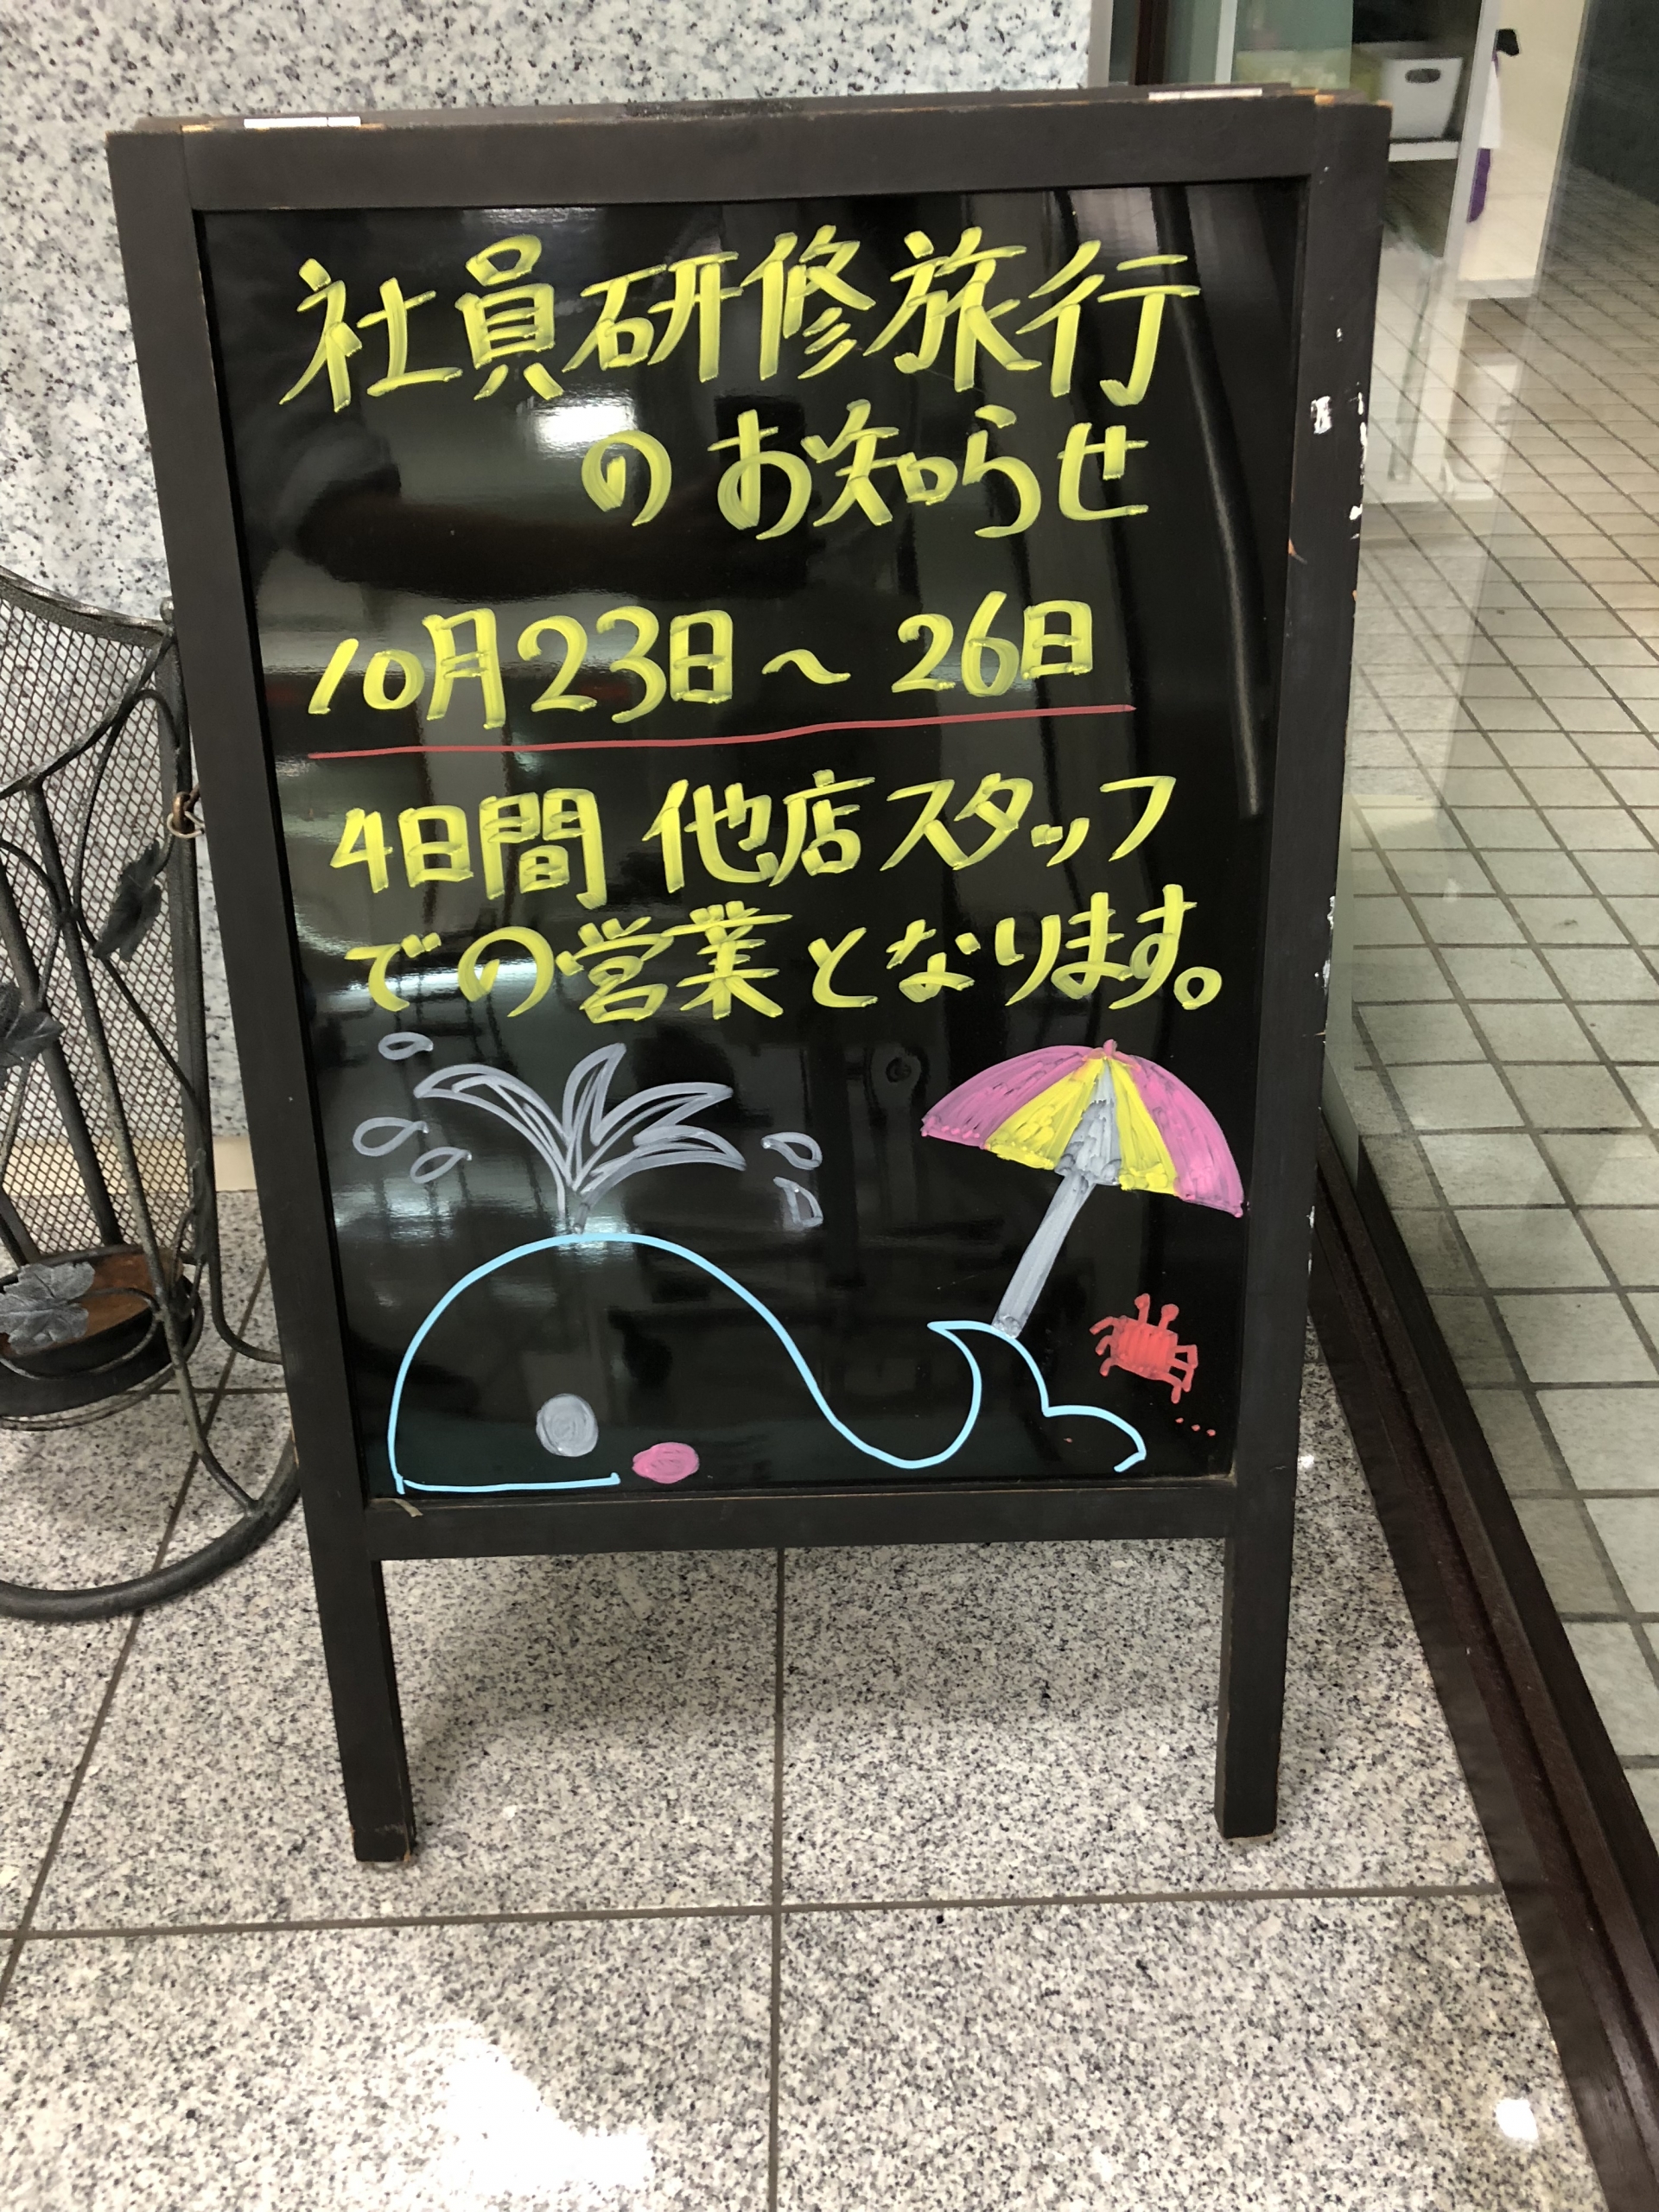 社員研修旅行
のお知らせ
10月23日～26日
4日間 他店スタッフ
での営業となります。